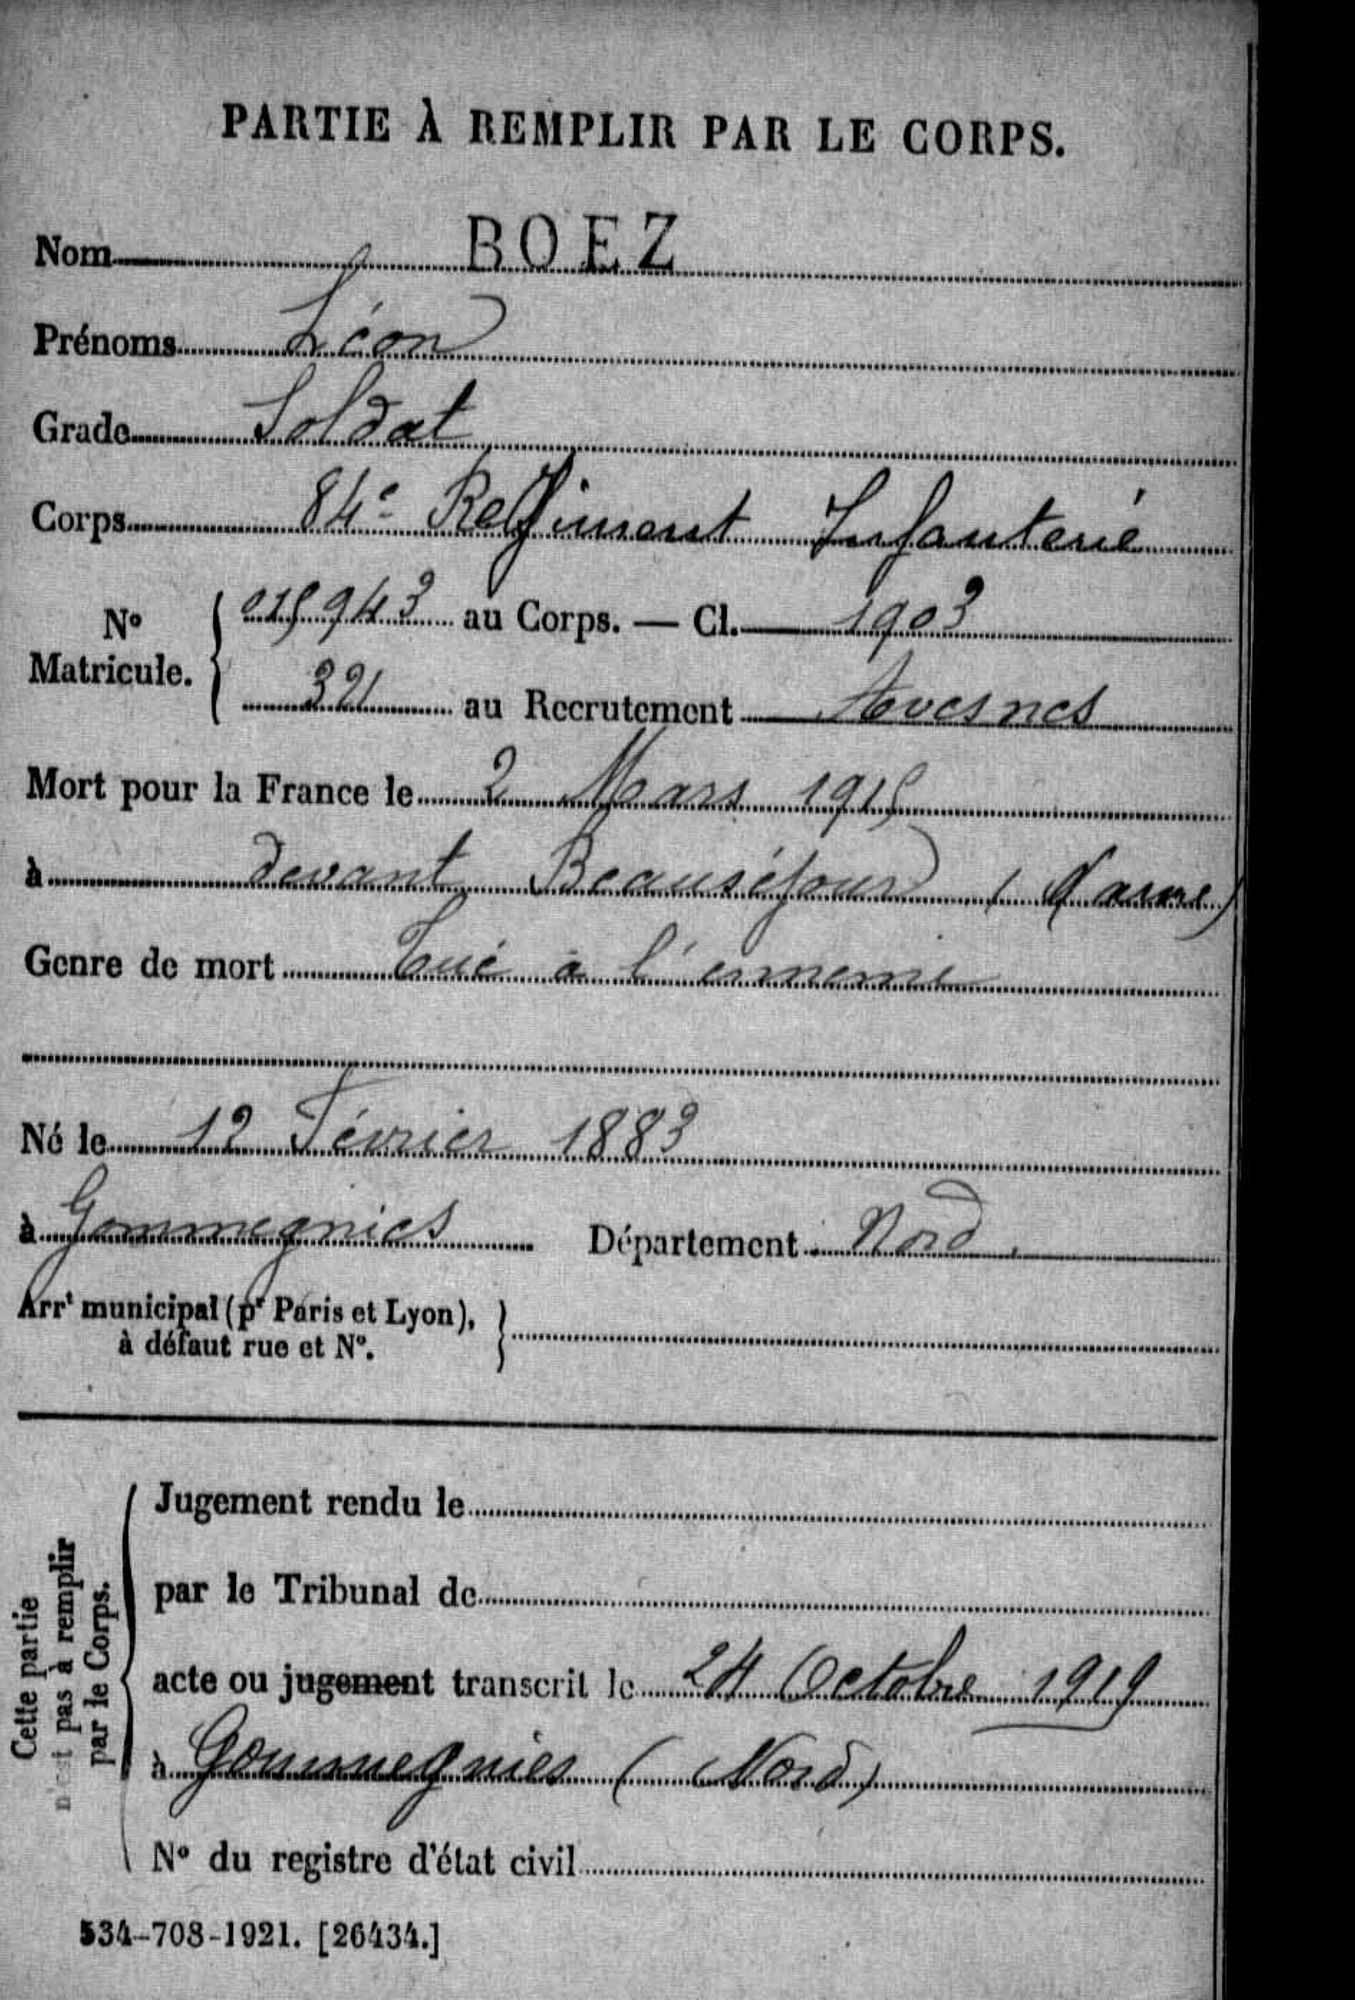 PARTIE À REMPLIR PAR LE CORPS.
Nom BOEZ
Prénoms Léon
Grade Soldat
Corps 84e Regiment Infanterie
No Matricule. { 015943 au Corps. — Cl. 1903
321 au Recrutement Avesnes
Mort pour la France le 2 Mars 1915
à devant Beauséjour (Marne)
Genre de mort Tué à l'ennemi
Né le 12 Février 1883
à Gommegnies Département Nord.
Arrt municipal (pr Paris et Lyon), }
à défaut rue et No.
Cette partie
n'est pas à remplir
par le Corps.
Jugement rendu le
par le Tribunal de
acte ou jugement transcrit le 24 Octobre 1919
à Gommegnies (Nord)
No du registre d'état civil
534-708-1921. [26434.]